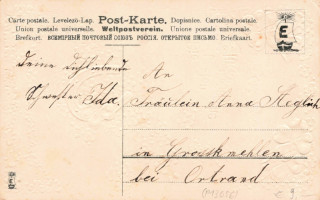 Carte postale. Levelezö-Lap. Post-Karte. Dopisnice. Cartolina postale.
Union postale universelle. Weltpostverein. Unione postale universale.
Brefkort. ВСЕМІРНЫЙ ПОЧТОВЫЙ СОЮЗЪ РОССІЯ. ОТКРЫТОЕ ПИСЬМО Briefkaart.
E
Deine Dichliebende
Schwester Ida.
An
Fräulein Anna
in Grosskmehlen
bei Ortrand